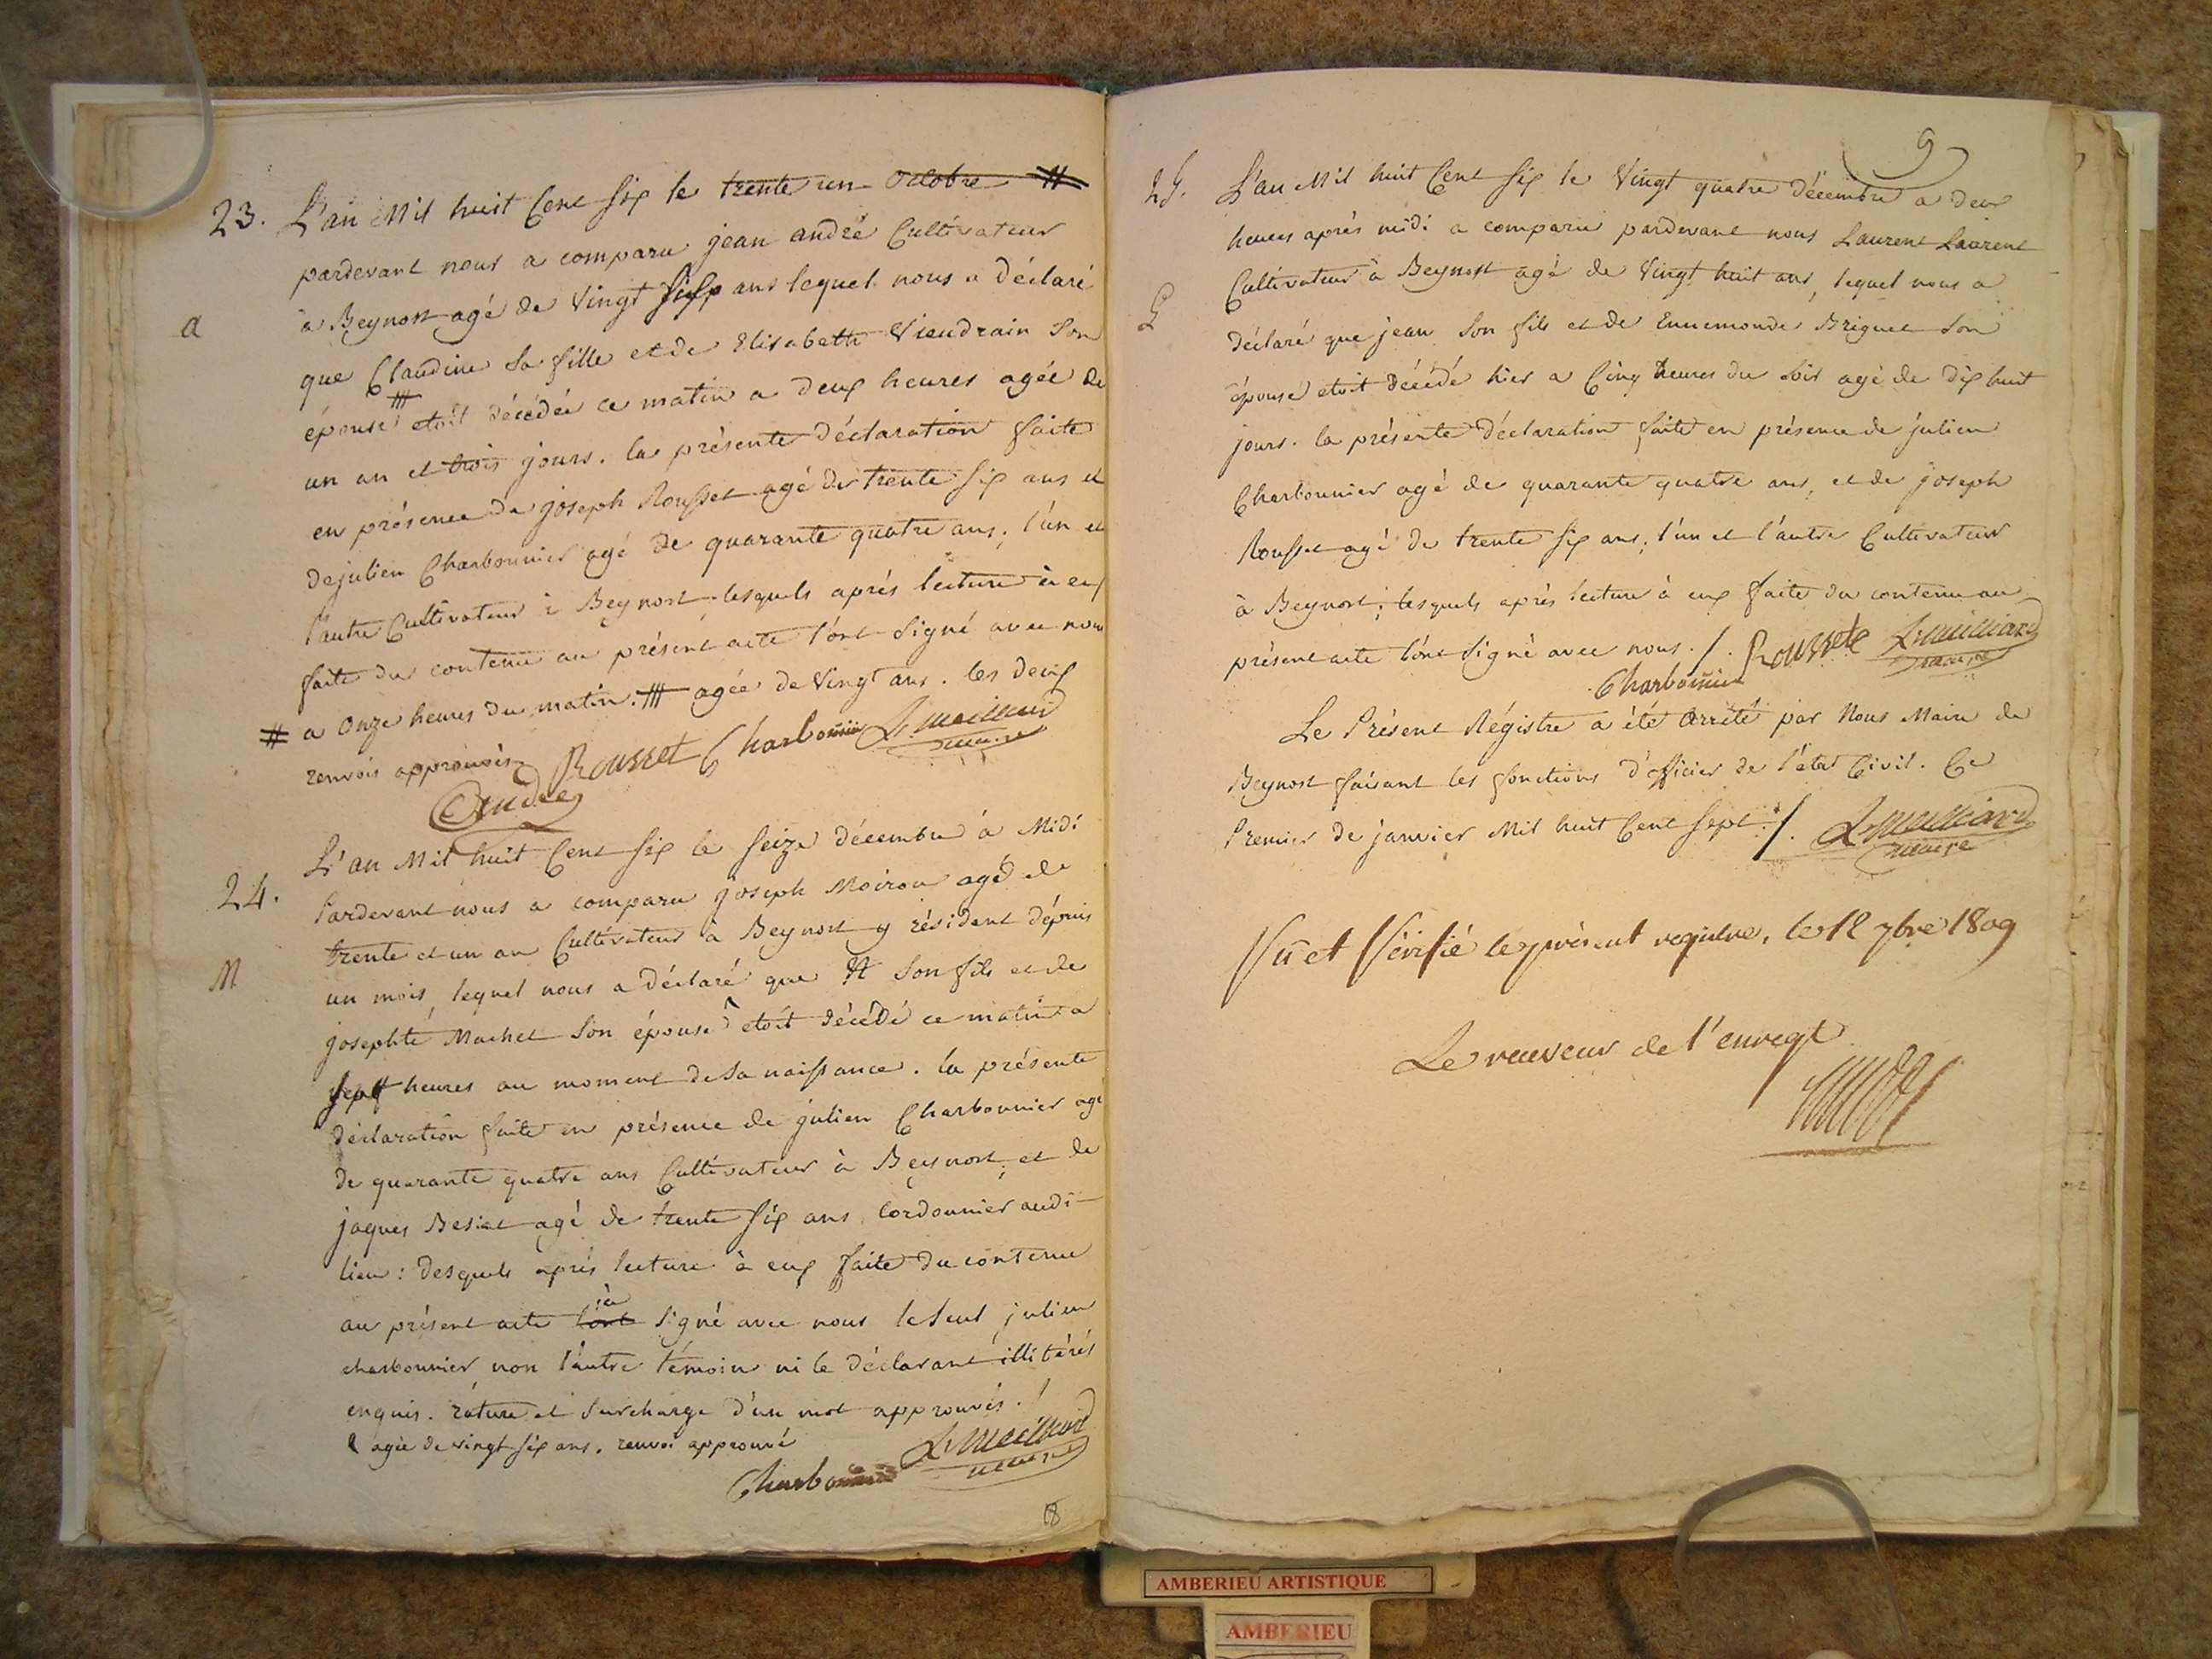 23. L'an Mil huit Cent six le trente un Octobre #
pardevant nous a comparu jean andré Cultivateur
a
à Beynost agé de Vingt six ans lequel nous a déclaré
que Claudine sa fille et de Elisabeth Vieudrain son
épouse # etoit décédée ce matin a deux heures agée de
un an et trois jours. la présente déclaration faite
en présence de joseph Rousset agé de trente six ans et
de julien Charbonnier agé de quarante quatre ans, l'un et
l'autre Cultivateur à Beynost lesquels après lecture à eux
faite du contenu au présent acte l'ont signé avec nous
# a Onze heures du matin. # agée de Vingt ans. les deux
renvois approuvés
André Rousset Charbonnier
maire
24. L'an Mil huit Cent six le seize décembre à Midi
Pardevant nous a comparu joseph Moiron agé de
trente et un an Cultivateur à Beynost y résident dépuis
M
un mois, lequel nous a déclaré que son fils et de
josephte Machet son épouse etoit décédé ce matin a
sept heures au moment de sa naissance. la présente
déclaration faite en présence de julien Charbonnier agé
de quarante quatre ans Cultivateur à Beynost, et de
jaques Besiat agé de trente six ans Cordonnier audi
lieu : desquels après lecture à eux faite du contenu
au présent acte l'ont l'a signé avec nous le seul julien
charbonnier non l'autre témoin ni le déclarant illitérés
enquis. rature et surcharge d'un mot approuvés.
agée de vingt six ans. renvoi approuvé
Charbonnier
maire
18
9
25. L'an Mil huit Cent six le Vingt quatre décembre a deux
heures après midi a comparu pardevant nous Laurent Laurent
Cultivateur à Beynost agé de Vingt huit ans, lequel nous a
L
déclaré que jean son fils et de Ennemonde Briguet son
épouse etoit décédé hier a Cinq heures du soir agé de dix huit
jours. la présente déclaration faite en présence de julien
Charbonnier agé de quarante quatre ans, et de joseph
Rousset agé de trente six ans, l'un et l'autre Cultivateur
à Beynost; lesquels après lecture à eux faite du contenu au
présent acte l'ont signé avec nous./. Rousset
Charbonnier
maire
Le Présent Régistre a été Arrêté par Nous Maire de
Beynost faisant les fonctions d'officier de l'état Civil. Ce
Premier de janvier Mil huit Cent sept./.
maire
Vu et Vérifié le présent registre, le 12 7bre 1809
Le receveur de l'enregt
AMBERIEU ARTISTIQUE
AMBERIEU